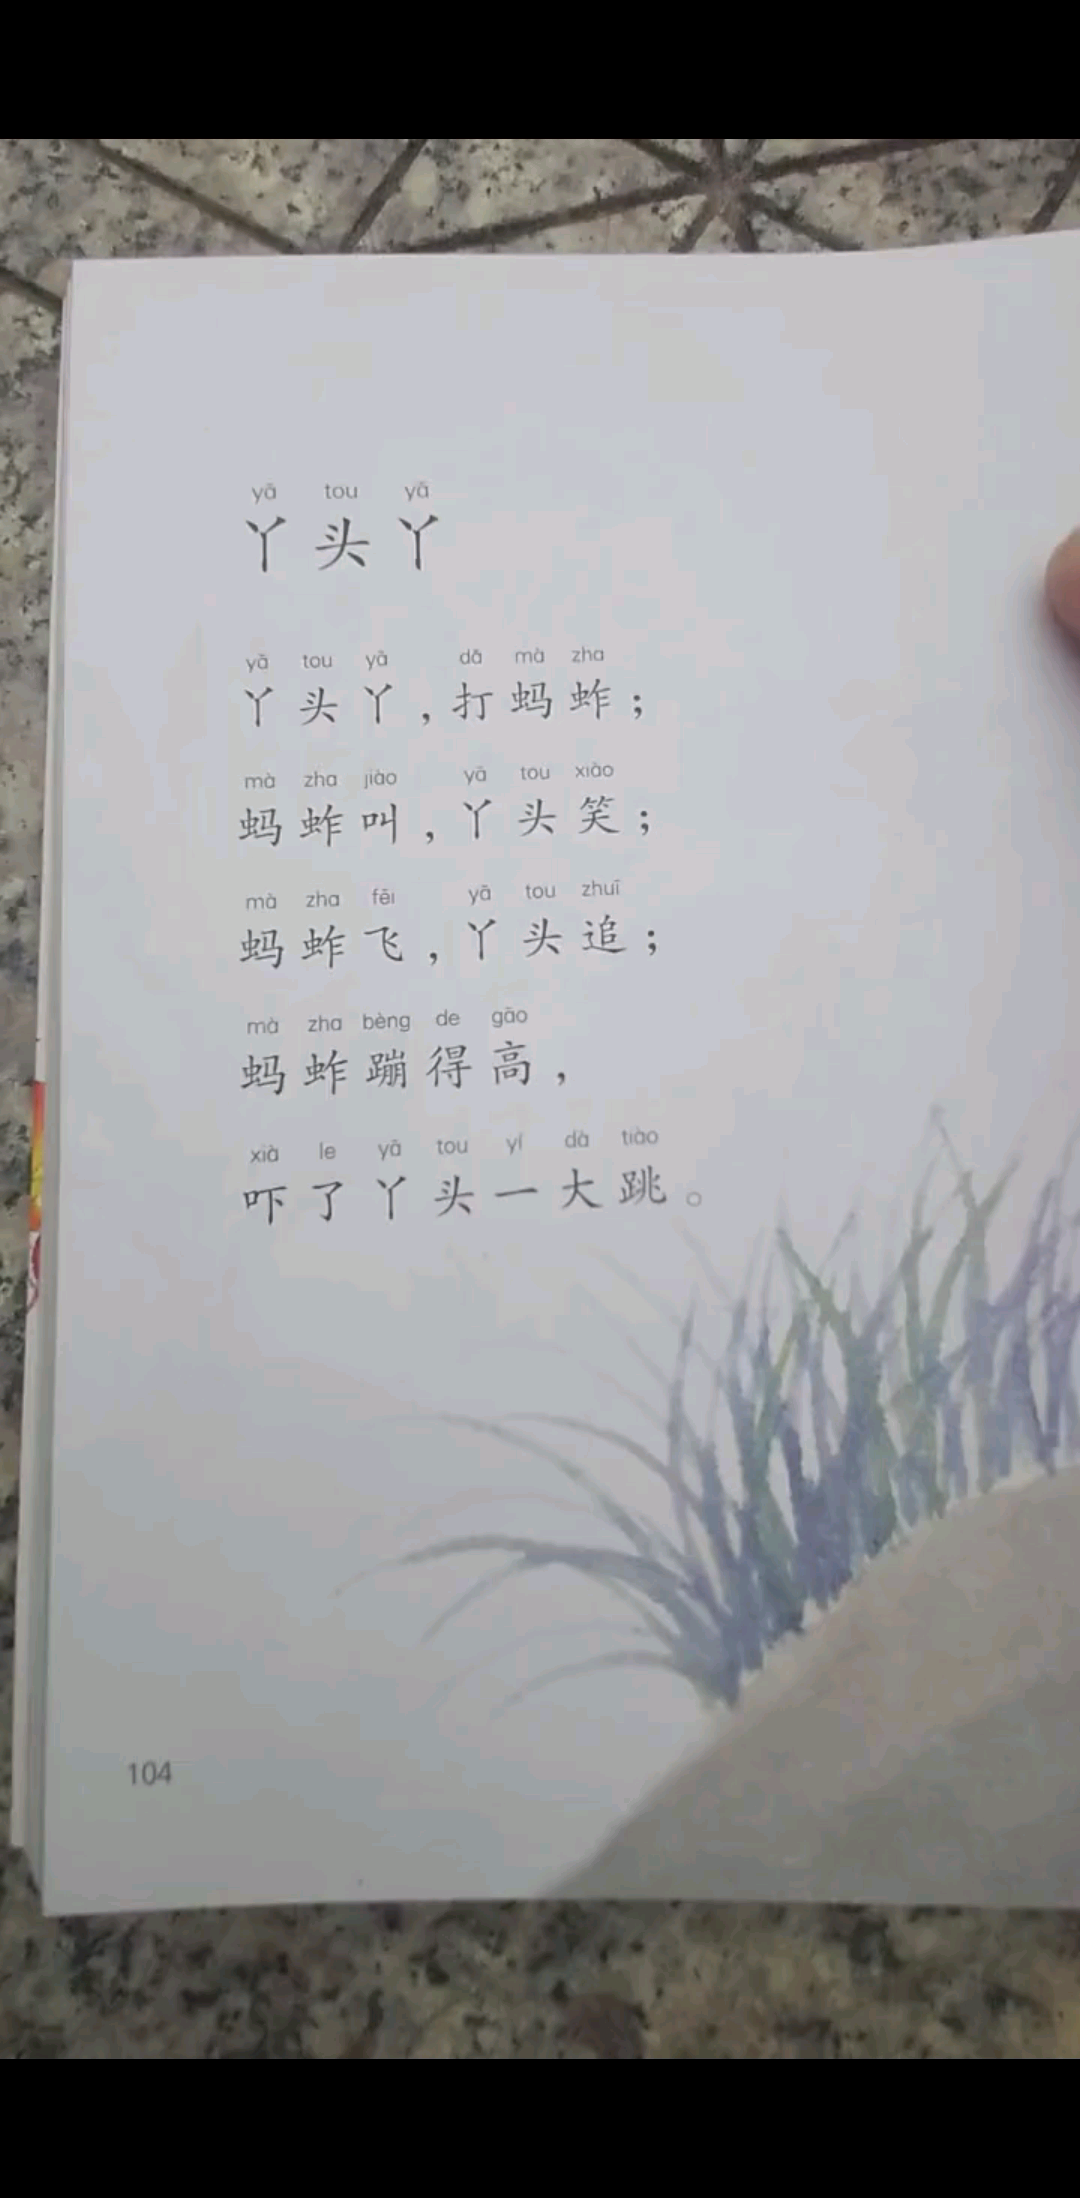 yā tou yā
丫头丫
yā tou yā dǎ mà zha
丫头丫，打蚂蚱；
mà zha jiào yā tou xiào
蚂蚱叫，丫头笑；
mà zha fēi yā tou zhuī
蚂蚱飞，丫头追；
mà zha bèng de gāo
蚂蚱蹦得高，
xià le yā tou yí dà tiào
吓了丫头一大跳。
104